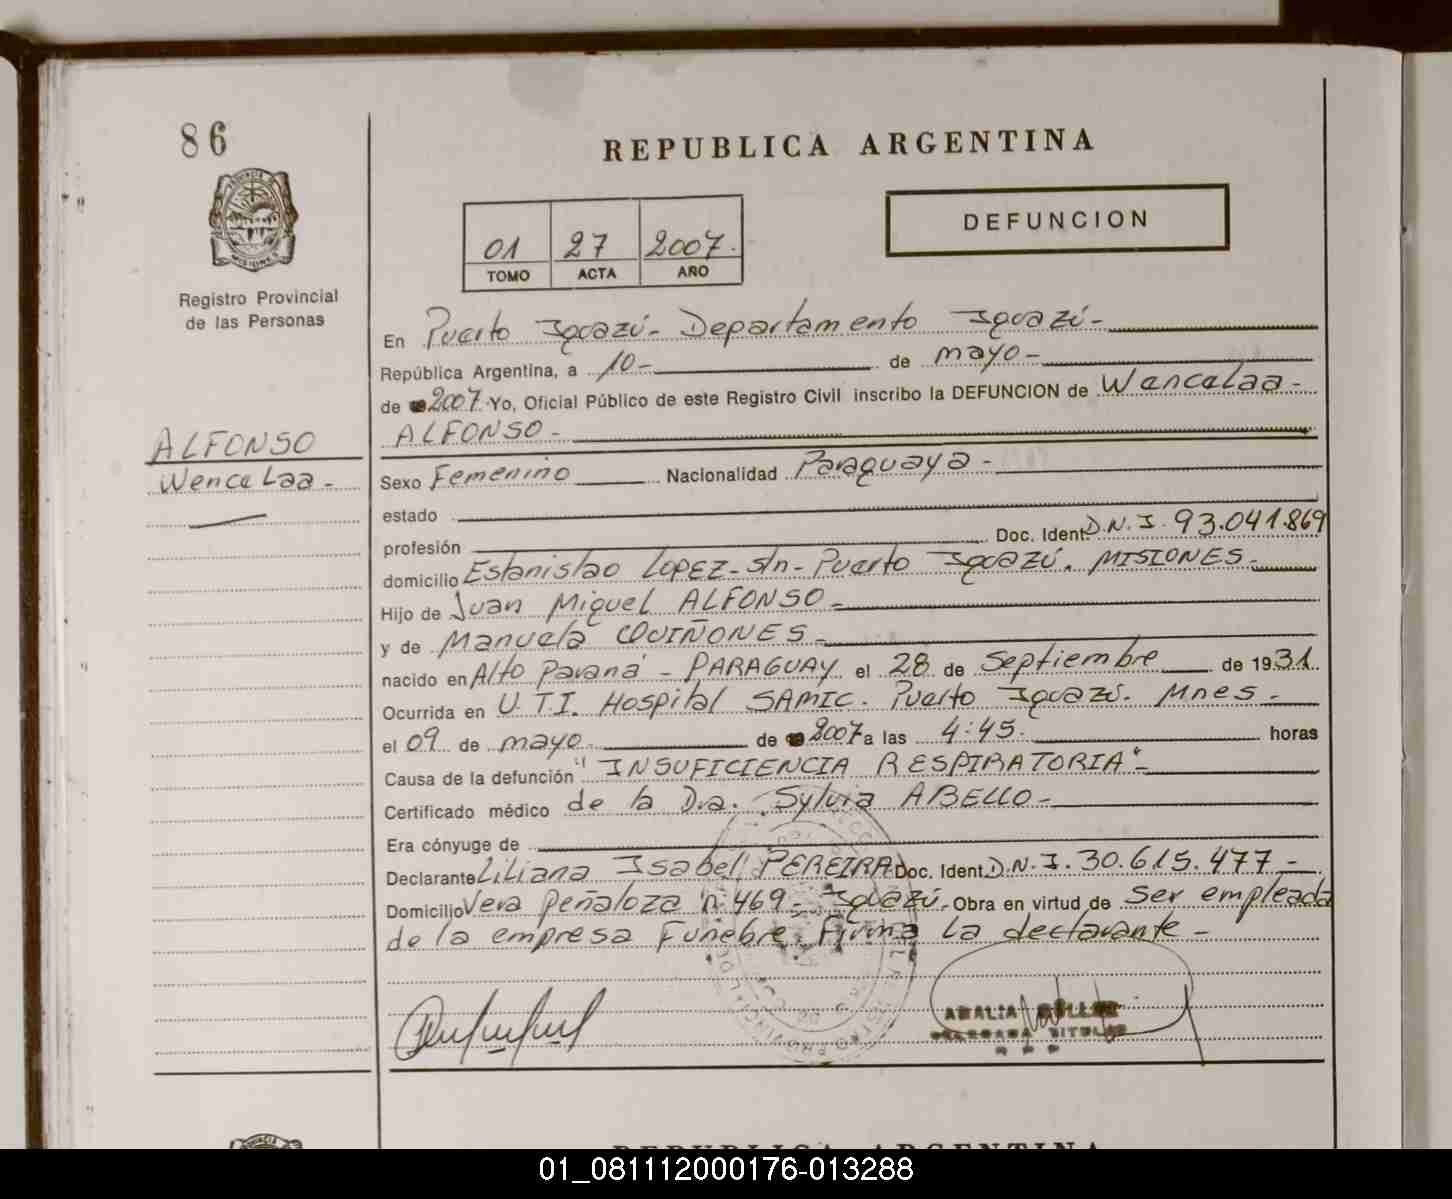 86
REPUBLICA ARGENTINA
DEFUNCION
01 27 2007.
TOMO ACTA AÑO
Registro Provincial
de las Personas
En Puerto Iguazú - Departamento Iguazú -
República Argentina, a 10 - de mayo -
de 2007. Yo, Oficial Público de este Registro Civil inscribo la DEFUNCION de Wencelaa -
ALFONSO -
ALFONSO
Wencelaa -
Sexo Femenino Nacionalidad Paraguaya -
estado
profesión Doc. Ident. D.N.I. 93.041.869
domicilio Estanislao LOPEZ - s/n - Puerto Iguazú. MISIONES -
Hijo de Juan Miguel ALFONSO -
y de Manuela QUIÑONES -
nacido en Alto Paraná - PARAGUAY el 28 de Septiembre de 1931.
Ocurrida en U.T.I. Hospital SAMIC. Puerto Iguazú. Mnes -
el 09 de mayo de 2007 a las 4:45. horas
Causa de la defunción "INSUFICIENCIA RESPIRATORIA" -
Certificado médico de la Dra. Sylvia ABELLO -
Era cónyuge de
Declarante Liliana Isabel PEREIRA Doc. Ident. D.N.I. 30.615.477 -
Domicilio Vera Peñaloza nº 469 - Iguazú. Obra en virtud de Ser empleada
de la empresa Fúnebre. Firma la declarante -
01_081112000176-013288